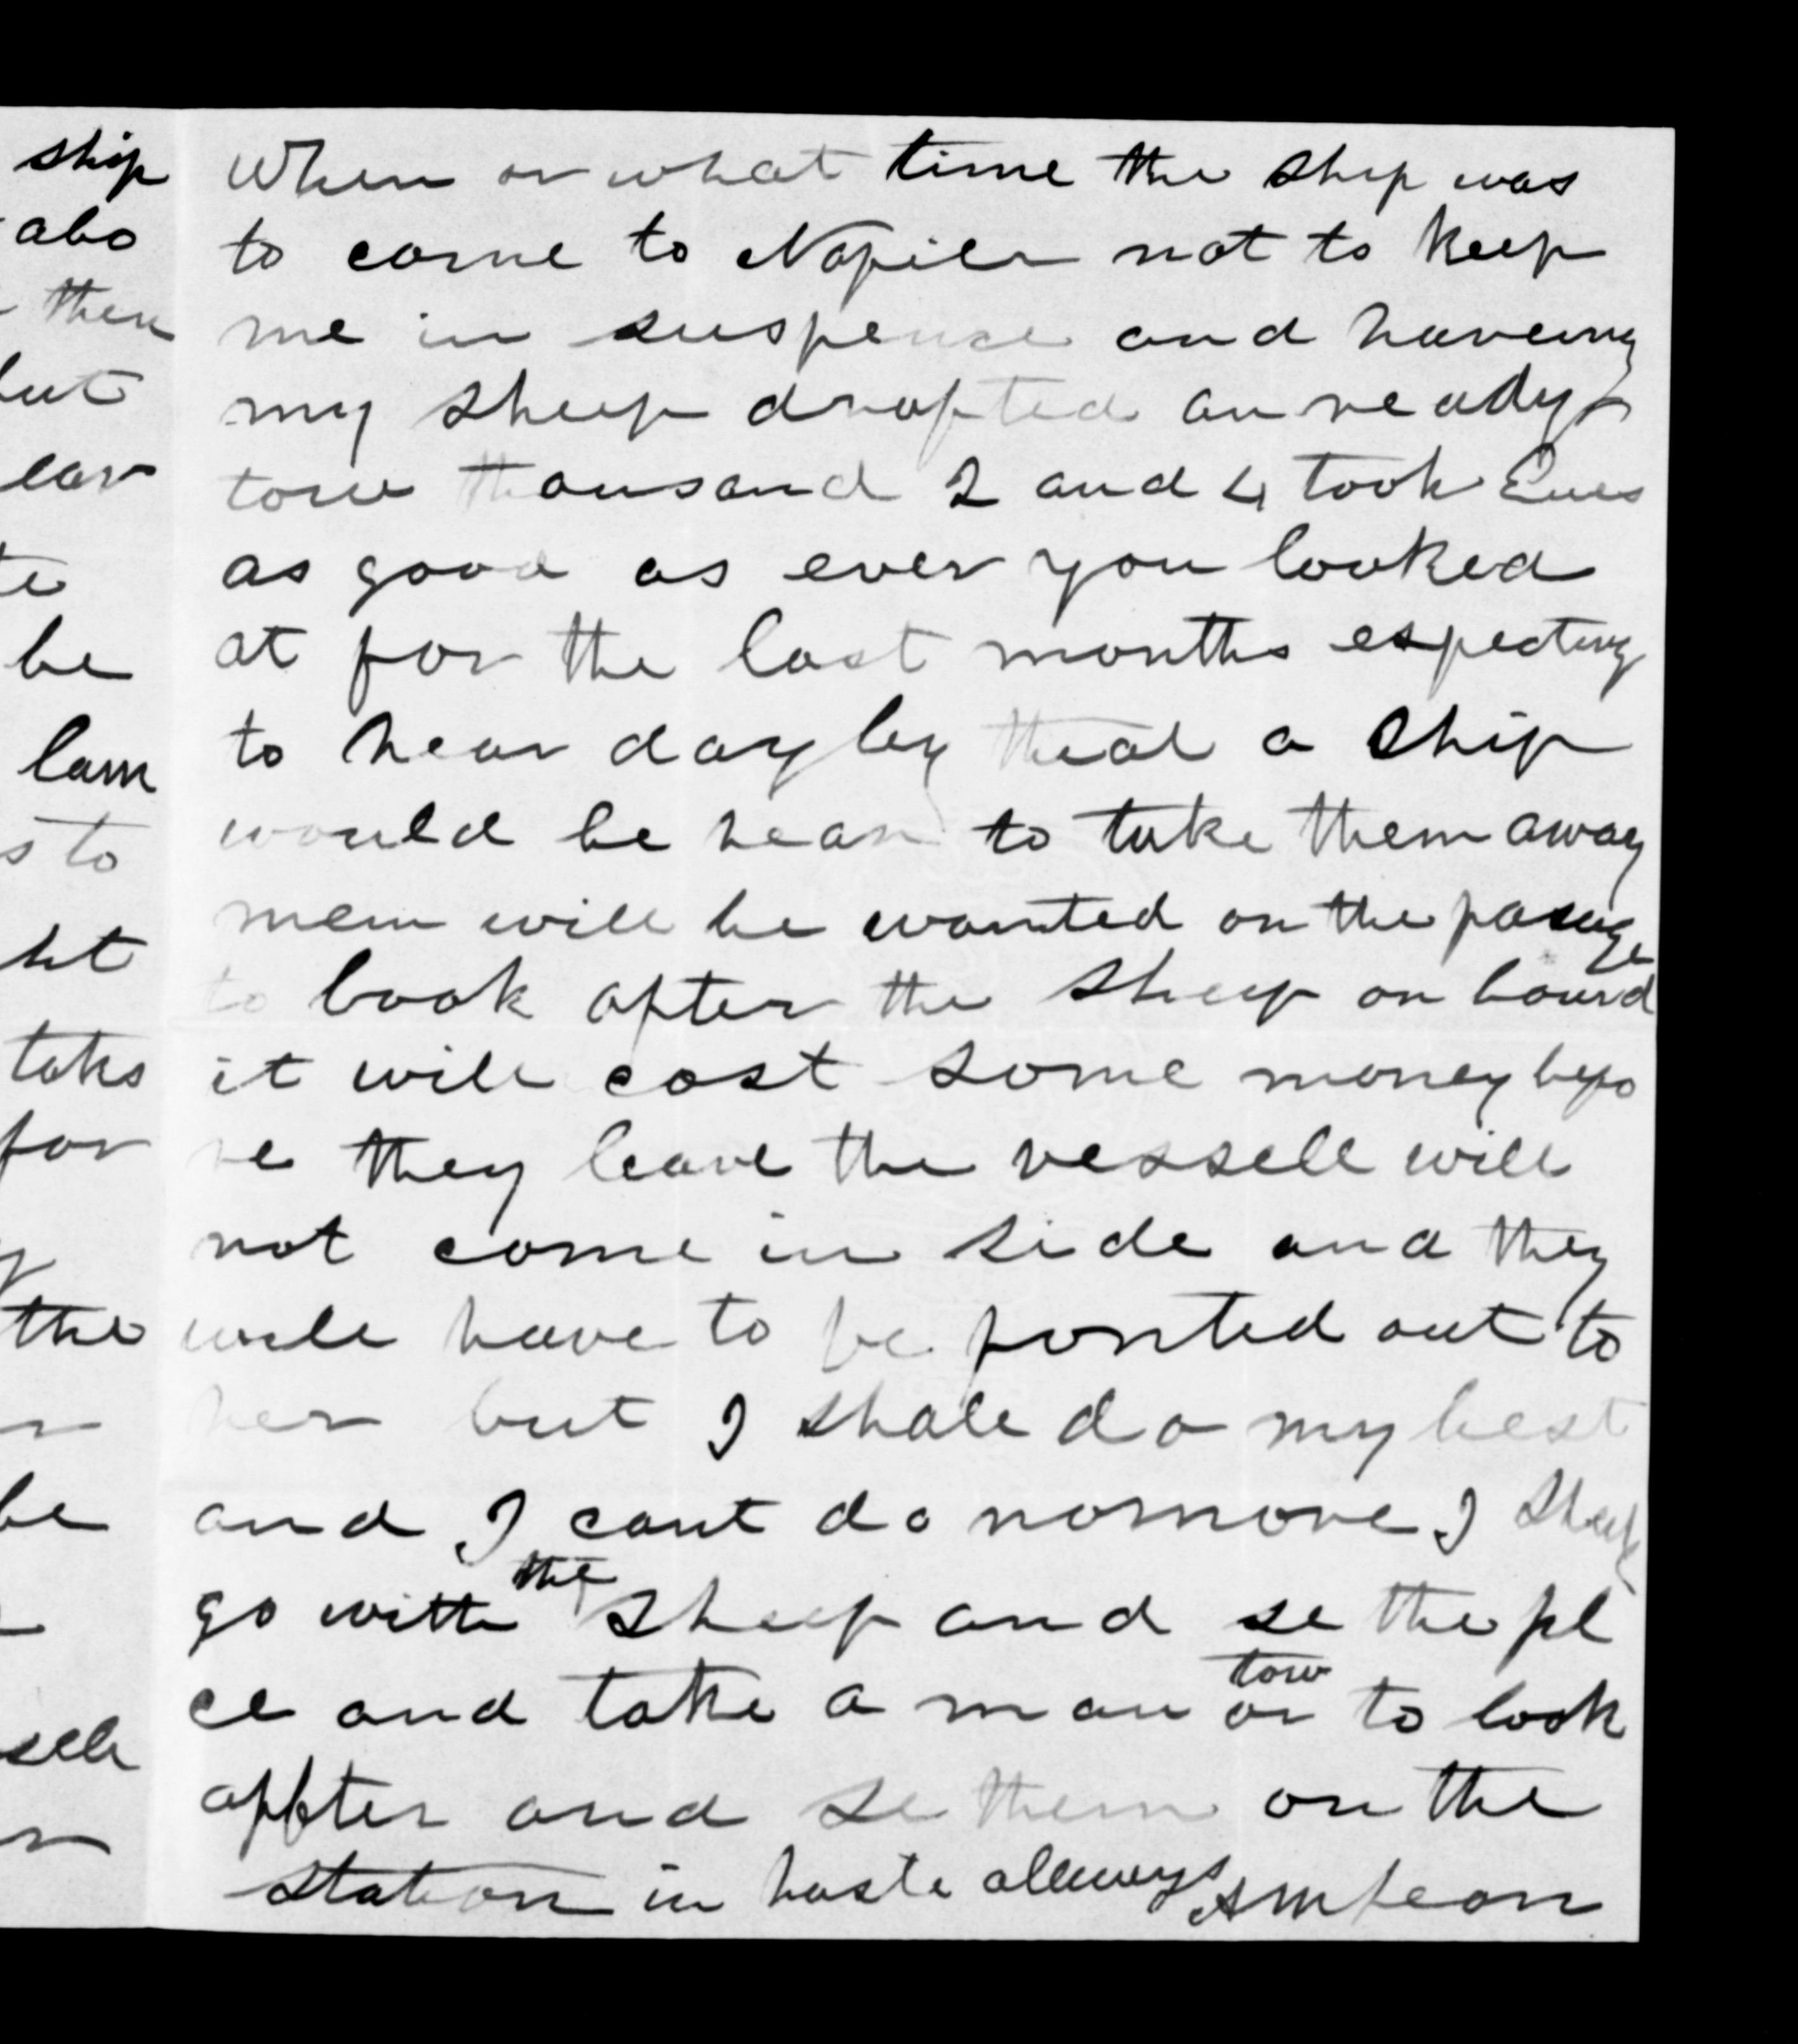 ship
abo
then
but
ear
te
be
lam
s to
ht
taks
for
y
the
be
sell
When or what time the ship was
to come to Napier not to keep
me in suspence and haveing
my sheep drapted an ready
tow thousand 2 and 4 tooth Ewes
as good as ever you looked
at for the last months especting
to hear day by that a Ship
would be hear to take them away
men will be wanted on the pasuge
to look after the sheep on bourd
it will cost some money befo
re they leave the vessell will
not come in side and they
will have to be ponted out to
her but I shale do my best
and I cant do nomore I Shall
go with the sheep and se the pl
ce and take a man or tow to look
affter and se them on the
station in haste allways